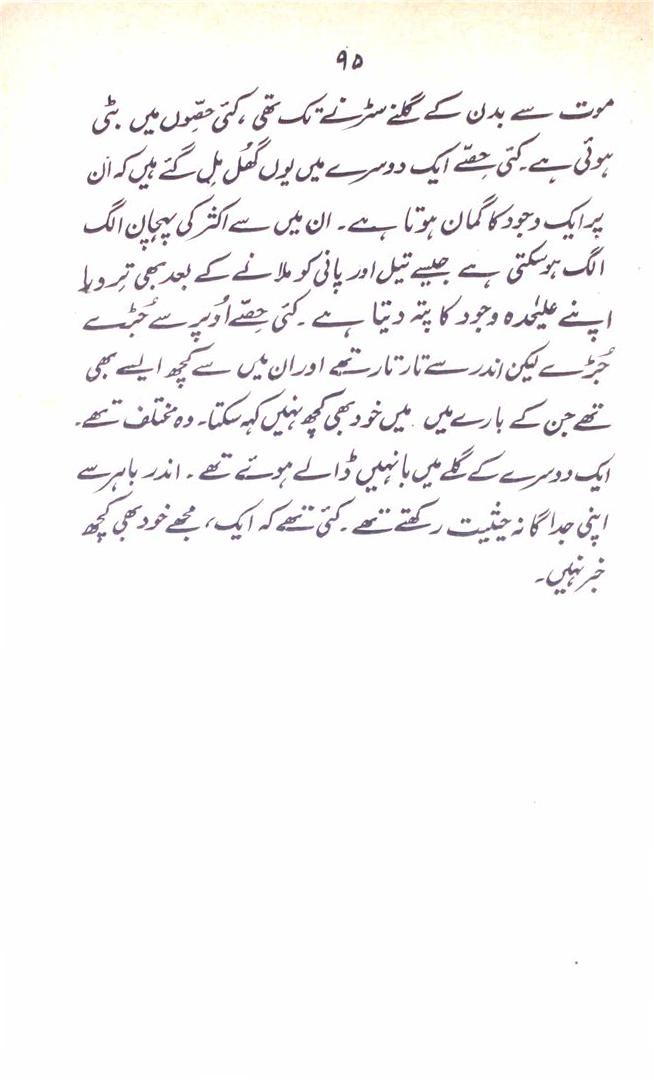 ۹۵
موت سے بدن کے گلنے سڑنے تک تھی ، کئی حصّوں میں بٹی
ہوئی ہے۔ کئی حِصّے ایک دوسرے میں یوں گُھل مِل گئے ہیں کہ اُن
پر ایک وجود کا گمان ہوتا ہے۔ ان میں سے اکثر کی پہچان الگ
الگ ہوسکتی ہے جیسے تیل اور پانی کو ملانے کے بعد بھی تِرورا
اپنے علیٰحدہ وجود کا پتہ دیتا ہے ۔ کئی حِصّے اُوپر سے جُڑے
جُڑے لیکن اندر سے تار تار تھے اور ان میں سے کچھ ایسے بھی
تھے جن کے بارے میں میں خود بھی کچھ نہیں کہہ سکتا۔ وہ مختلف تھے۔
ایک دوسرے کے گلے میں بانہیں ڈالے ہوئے تھے ۔ اندر باہر سے
اپنی جداگانہ حیثیت رکھتے تھے ۔ کئی تھے کہ ایک ، مجھے خود بھی کچھ
خبر نہیں ۔